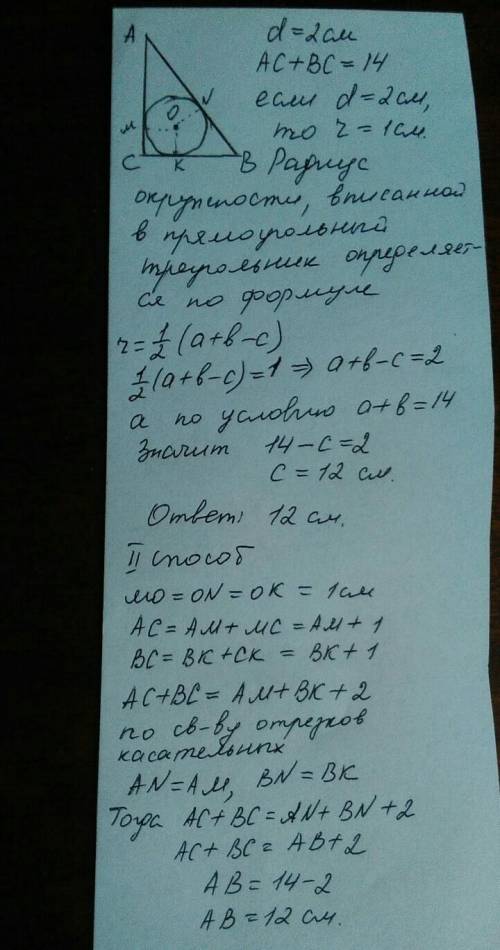 A
d=2см
AC+BC=14
если d=2см,
N
O
M
то r=1см.
C K B Радиус
окружности, вписанной
в прямоугольный
треугольник определяет-
ся по формуле
r=1/2(a+b-c)
1/2(a+b-c)=1 ⇒ a+b-c=2
а по условию a+b=14
Значит 14-c=2
c=12 см.
Ответ: 12 см.
II способ
MO=ON=OK=1см
AC=AM+MC=AM+1
BC=BK+CK=BK+1
AC+BC=AM+BK+2
по св-ву отрезков
касательных
AN=AM, BN=BK
Тогда AC+BC=AN+BN+2
AC+BC=AB+2
AB=14-2
AB=12см.